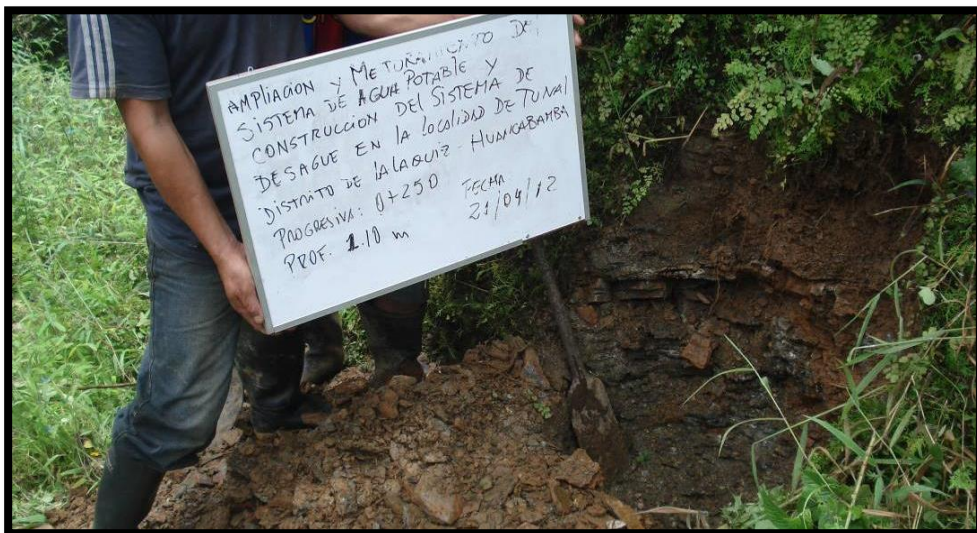 AMPLIACION Y METURAMIENTO DE
SISTEMA DE AGUA POTABLE Y
CONSTRUCCION DEL SISTEMA DE
DESAGUE EN LA LOCALIDAD DE TUNAL
DISTRITO DE LALAQUIZ - HUANCABAMBA
PROGRESIVA: 0+250
FECHA
PROF. 1.10 m
21/04/12